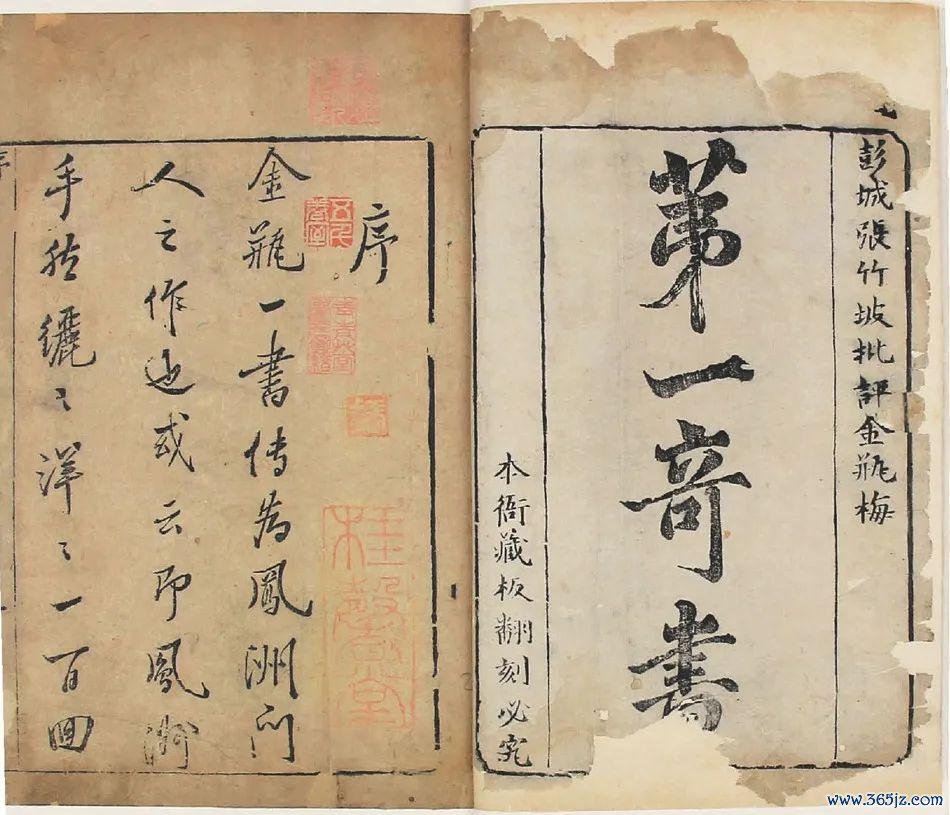 彭城張竹坡批評金瓶梅
第一奇書
本衙藏板翻刻必究
序
金瓶一書传為鳳洲门
人之作也或云即鳳洲
手然纚〻洋〻一百回
www.365jz.com